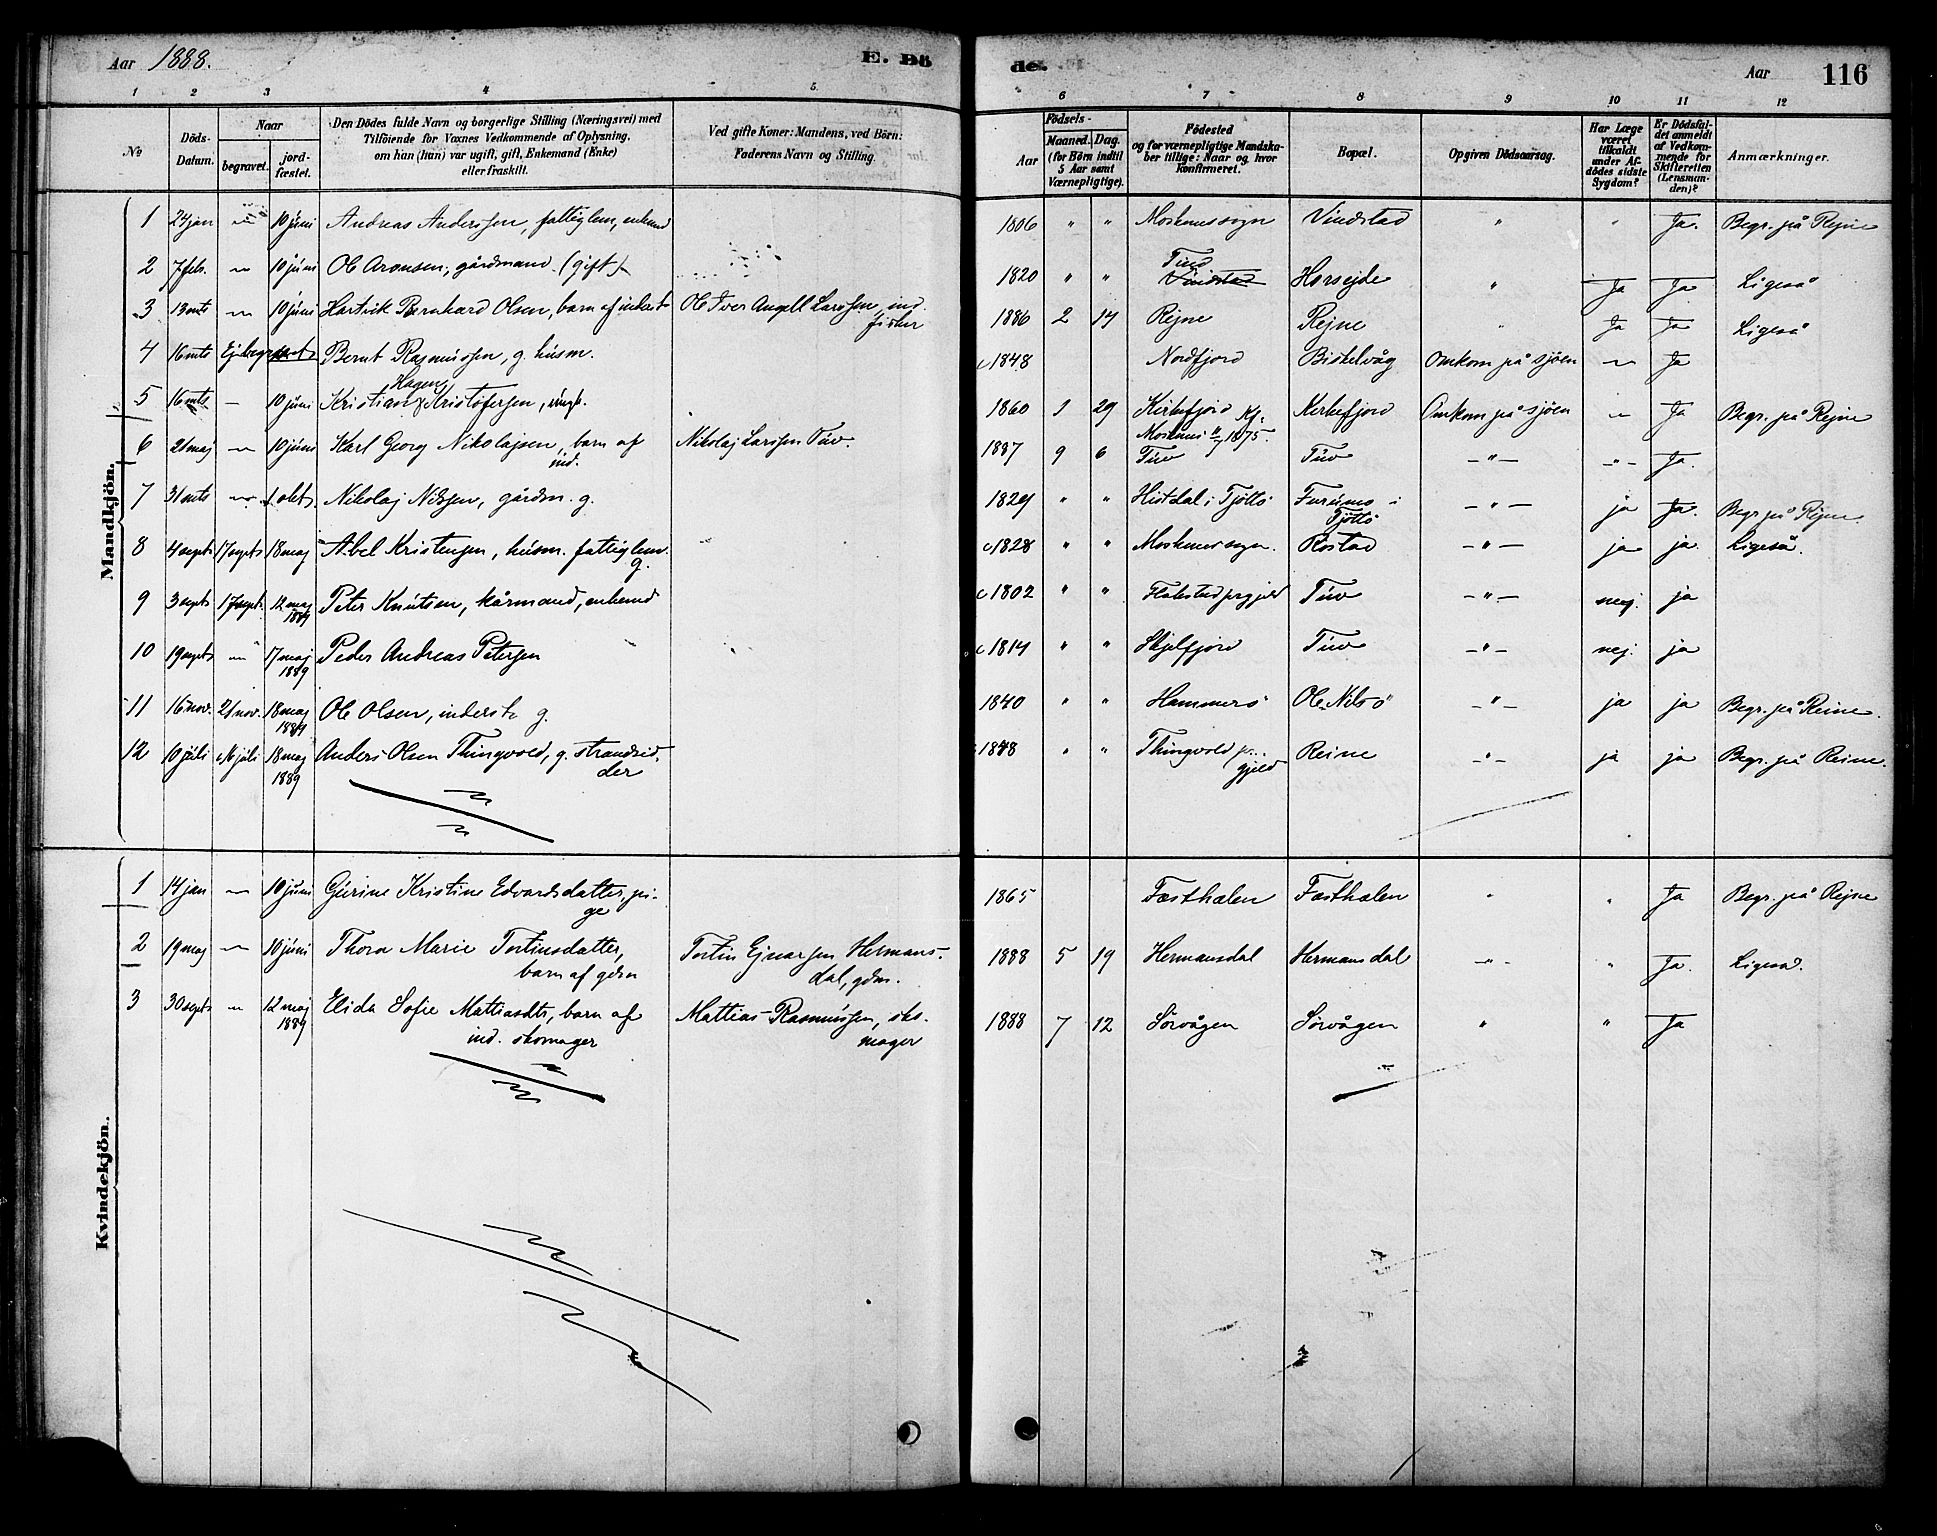 Aar 1888.
E. Dö
de.
Aar
116
1 2 3 4 5
6 7 8 9 10 11 12
No
Döds-Datum.
Naar
begravet.
jord-fæstet.
Den Dödes fulde Navn og borgerlige Stilling (Næringsvei) med
Tilföiende for Voxnes Vedkommende af Oplysning,
om han (hun) var ugift, gift, Enkemand (Enke)
eller fraskilt.
Ved gifte Koner: Mandens, ved Börn:
Faderens Navn og Stilling.
Födsels-
Aar
Maaned. Dag.
(for Börn indtil
5 Aar samt
Værnepligtige).
Födested
og for værnepligtige Mandska-
ber tillige: Naar og hvor
konfirmeret.
Bopæl.
Opgiven Dödsaarsag.
Har Læge
været
tilkaldt
under Af-
dödes sidste
Sygdom?
Er Dödsfal-
det anmeldt
af Vedkom-
mende for
Skifteretten
(Lensman-
den)?
Anmærkninger.
Mandkjön.
1 24 jan " 10 juni Andreas Anderssen, fattiglem, enkemd 1806 " " Moskenessogn Vindstad " " Ja. Begr. på Rejne
2 7 feb. " 10 juni Ole Aronsen, gårdmand (gift) 1820 " " Tind Vindstad Horsejde " Ja Ja Ligeså
3 13 mts " 10 juni Hartvik Bernhard Olsen, barn af inderst Ole Iver Angell Larssen, ind. fisker 1886 2 14 Rejne Rejne " Ja Ja Ligeså
4 16 mts Ej begr Bernt Rasmussen, g. husm. c 1848 Nordfjord Biskelvåg Omkom på sjöen " Ja
5 16 mts - 10 juni Kristian Hagen Kristofersen, ungk. 1860 1 29 Kirkefjord Kj. Kirkefjord Omkom på sjöen " Ja Begr. på Rejne
Moskenes 1875.
6 21 maj " 10 juni Karl Georg Nikolajsen, barn af ind. Nikolaj Larssen Tuv. 1887 9 6 Tuv Tuv - " - - " - Ja.
7 31 mts " 1 okt. Nikolaj Nilssen, gårdm. g. 1829 " " Histdal i Tjöttö Furumo i Tjöttö - " - ja Ja. Begr. på Rejne.
8 4 septr 17 septr 18 maj Abel Kristensen, husm. fattiglem. g. c 1828 " " Moskenessogn. Rostad - " - ja ja. Ligeså.
9 3 septr 17 septr. 12 maj 1889 Peter Knutsen, kårmand, enkemd c 1802 " " Flakstad prgjeld Tuv - " - nej. ja
10 19 septr " 17 maj 1889 Peder Andreas Petersen c 1814 " " Skjelfjord Tuv - " - nej. ja
11 16 nov. 21 nov. 18 maj 1889 Ole Olsen, inderste g. 1840 " " Hammerö Ole-Nilsö - " - ja ja Begr. på Reine.
12 10 juli 16 juli 18 maj 1889 Anders Olsen Thingvold, g. strandsidder 1848 " " Thingvold pr. gjeld Reine - " - ja ja Begr. på Reine.
Kvindekjön.
1 14 jan " 10 juni Gurine Kristine Edvardsdatter, pige 1865 Fæsthælen Fæsthælen " " Ja Begr. på Rejne
2 19 maj " 10 juni Thora Marie Tortinsdatter, barn af gdm Tortin Ejnarsen Hermansdal, gdm. 1888 5 19 Hermansdal Hermansdal - " - " Ja. Ligeså.
3 30 septr " 12 maj 1889 Elida Sofie Mattiasdtr, barn af ind. skomager Mattias Rasmussen, skomager 1888 7 12 Sörvågen Sörvågen " " Ja